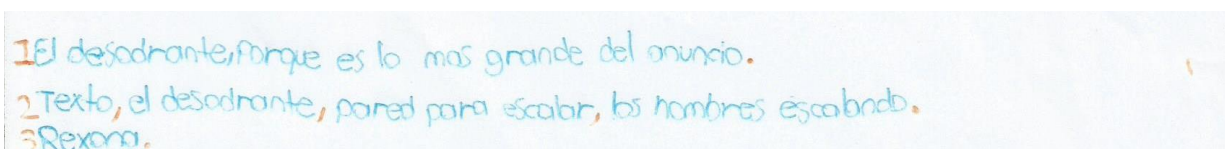 1 El desodrante, porque es lo mas grande del anuncio.
2 Texto, el desodrante, pared para escalar, los hombres escalando.
3 Rexona.